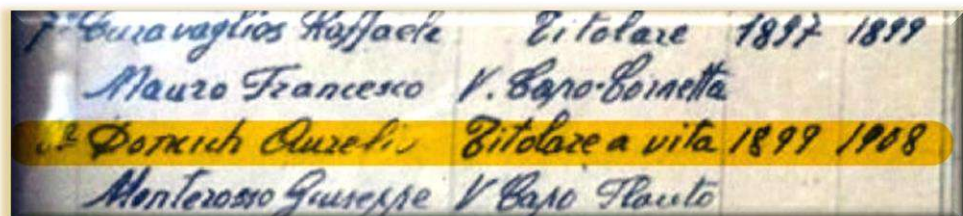 7° Caravaglios Raffaele Titolare 1897 1899
Mauro Francesco V. Capo-Cornetta
Doncich Aurelio Titolare a vita 1899 1908
Monterosso Giuseppe V Capo Flauto